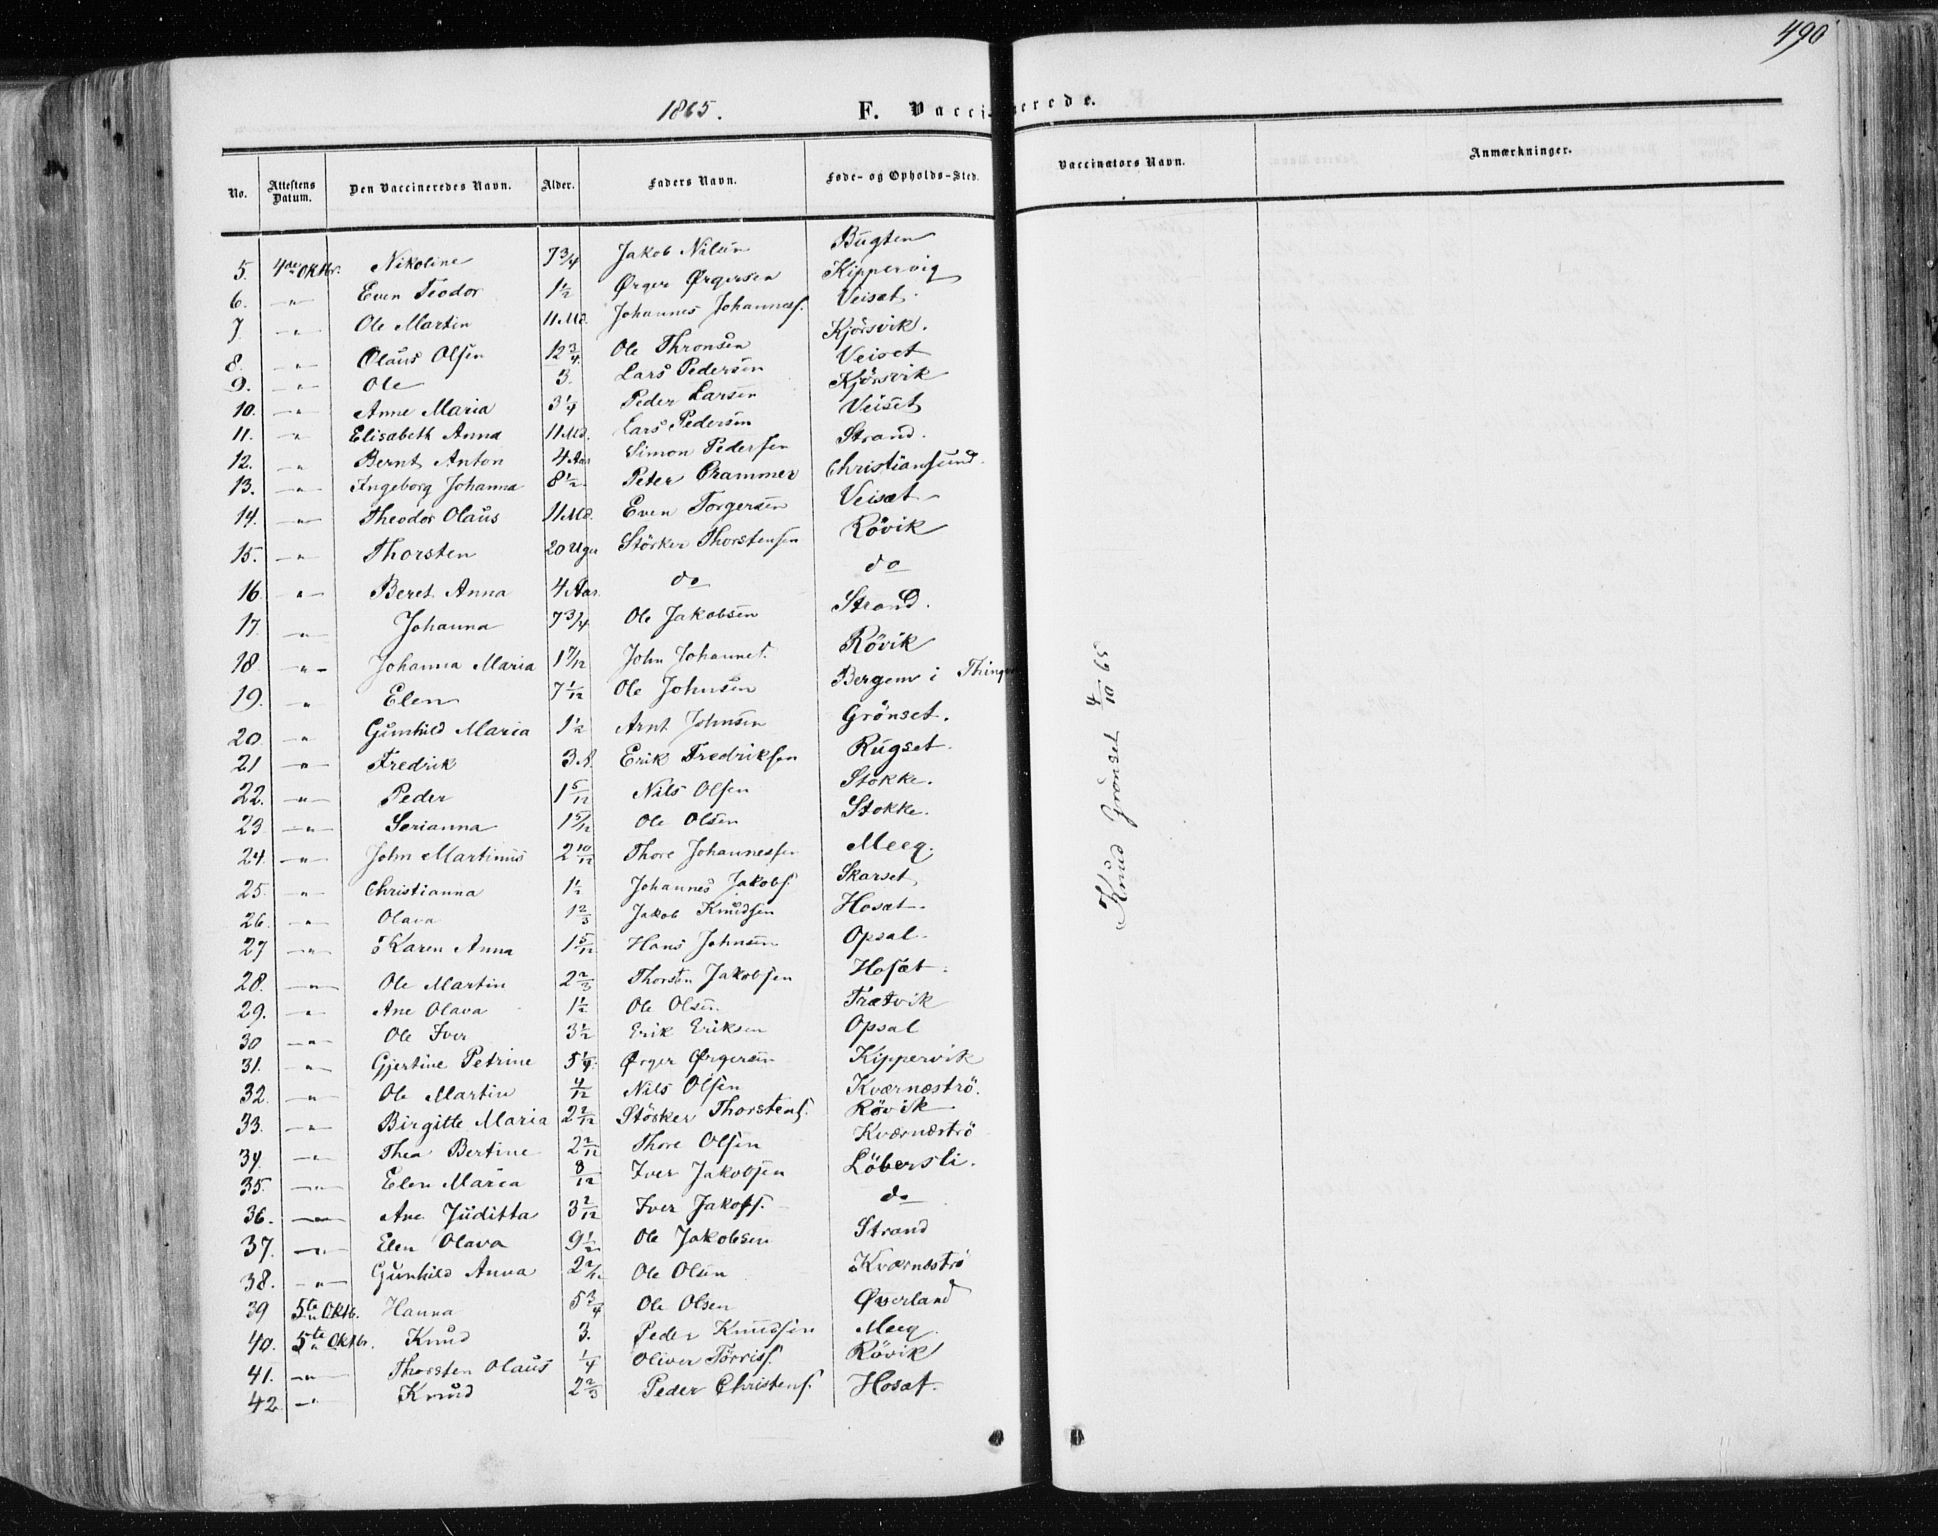 490
1865. F. Vaccinerede.
No. Attestens Datum. Den Vaccineredes Navn. Alder. Faders Navn. Føde- og Opholds-Sted. Vaccinators Navn. Anmærkninger.
5. 4de Oktbr. Nikoline 7 3/4 Jakob Nilsen Bugten
6. -"- Even Teodor 1 1/2 Ørger Ørgersen Kippervig
7. -"- Ole Martin 11 Md. Johannes Johannesf. Veiset.
8. -"- Olaus Olsen 12 3/4 Ole Thronsen Kjörsvik.
9. -"- Ole 3. Lars Pedersen Veiset
10. -"- Anne Maria 3 1/4 Peder Larsen Kjörsvik
11. -"- Elisabeth Anna 11 Md. Lars Pedersen Veiset
12. -"- Bernt Anton 4 Aar Simon Pedersen Strand.
13. -"- Ingeborg Johanna 8 1/2 Peter Crammer Christiansund.
14. -"- Theodor Olaus 11 Md. Even Torgersen Veiset
15. -"- Thorsten 20 Uger Störker Thorstensen Rövik
16. -"- Beret Anna 4 Aar. do do
17. -"- Johanna 7 3/4 Ole Jakobsen Strand.
18. -"- Johanna Maria 1 7/12 John Johannes. Rövik
19. -"- Elen 7 1/12 Ole Johnsen Bergem i Thingv
20. -"- Gunhild Maria 1 1/2 Arnt Johnsen Grönset.
21 -"- Fredrik 3 A. Erik Fredriksen Rugset.
22. -"- Peder 1 5/12 Nils Olsen Stokke.
23 -"- Serianna 1 5/12 Ole Olsen Stokke.
24. -"- John Martinus 2 10/12 Thore Johannessen Meeg.
25. -"- Christianna 1 1/2 Johannes Jakobs. Skarset
26. -"- Olava 1 2/3 Jakob Knudsen Hosæt.
27 -"- Karen Anna 1 5/12 Hans Johnsen Opsal.
28. -"- Ole Martin 2 2/3 Thorsten Jakobsen Hosæt.
29. -"- Ane Olava 1 1/2 Ole Olsen Trætvik
30 -"- Ole Iver 3 1/2 Erik Eriksen Opsal
31. -"- Gjertine Petrine 5 1/4 Ørger Ørgersen Kippervik
32. -"- Ole Martin 4/12 Nils Olsen Kværnæströ.
33. -"- Birgitte Maria 2 2/12 Störker Thorstens. Rövik
34. -"- Thea Bertine 2 2/12 Thore Olsen Kværnæströ
35. -"- Elen Maria 8/12 Iver Jakobsen Löbersli.
36. -"- Ane Juditta 3 2/12 Iver Jakobs. do
37. -"- Elen Olava 9 1/2 Ole Jakobsen Strand
38. -"- Gunhild Anna 2 2/12 Ole Olsen Kværnæströ
39 5te Oktb. Hanna 5 3/4 Ole Olsen Øverland
40. 5te Oktb. Knud 3. Peder Knudsen Meeg.
41. -"- Thorsten Olaus 1/4 Oliver Törrisf. Rövik
42. -"- Knud 2 2/3 Peder Christens. Hosæt.
Knud Grönset 4/10 65